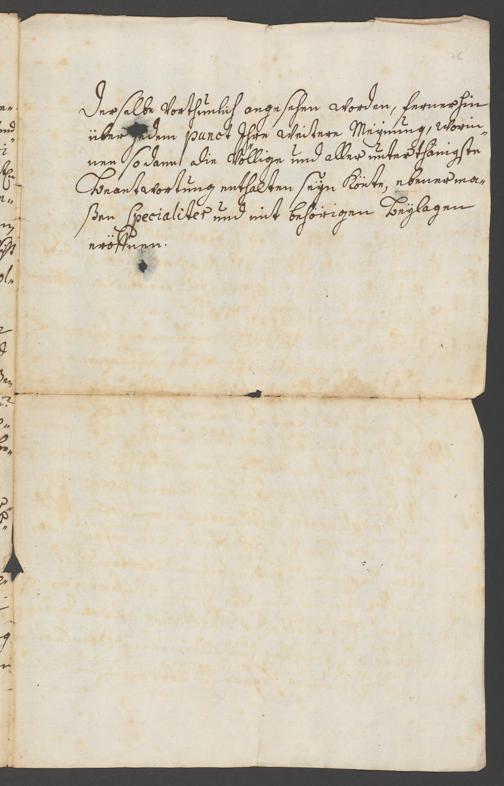 derselbe vorthunlich angesehen worden, fernerhin
über jedem punct Ihre weitere Meÿnung, worin-
nen sodann die völlige und allerunterthänigste
Beantwortung enthalten seÿn könte, ebenerma-
ßen specialiter und mit behörigen Beÿlagen
eröffnen.